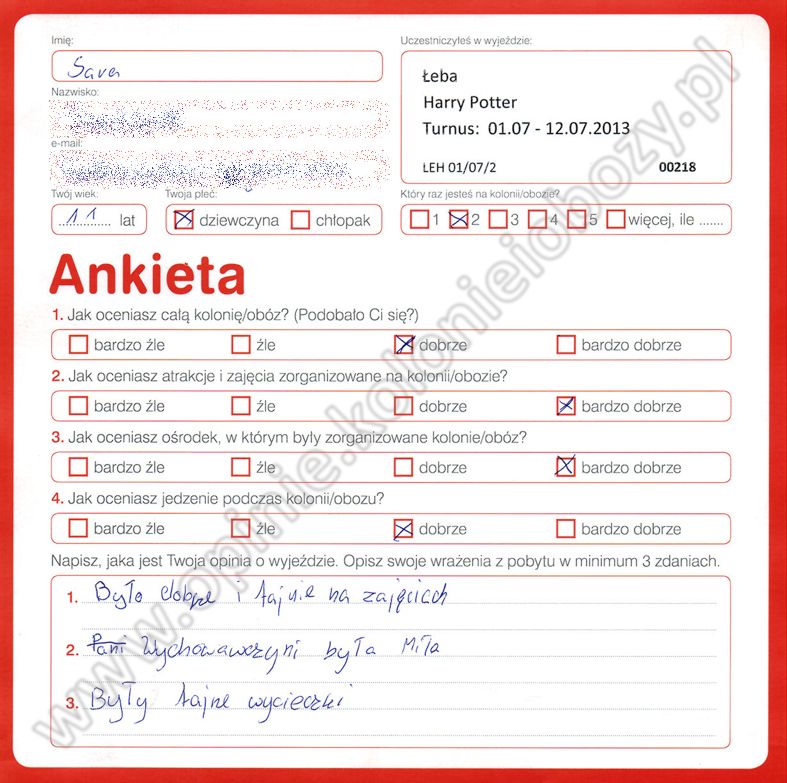 Imię:
Uczestniczyłeś w wyjeździe:
Sara
Łeba
Harry Potter
Turnus: 01.07 - 12.07.2013
LEH 01/07/2 00218
Nazwisko:
e-mail:
Twój wiek:
Twoja płeć:
Który raz jesteś na kolonii/obozie?
11 lat
dziewczyna chłopak
1 2 3 4 5 więcej, ile .......
Ankieta
1. Jak oceniasz całą kolonię/obóz? (Podobało Ci się?)
bardzo źle źle dobrze bardzo dobrze
2. Jak oceniasz atrakcje i zajęcia zorganizowane na kolonii/obozie?
bardzo źle źle dobrze bardzo dobrze
3. Jak oceniasz ośrodek, w którym były zorganizowane kolonie/obóz?
bardzo źle źle dobrze bardzo dobrze
4. Jak oceniasz jedzenie podczas kolonii/obozu?
bardzo źle źle dobrze bardzo dobrze
Napisz, jaka jest Twoja opinia o wyjeździe. Opisz swoje wrażenia z pobytu w minimum 3 zdaniach.
1. Było dobrze i fajnie na zajęciach
2. Pani Wychowawczyni była Miła
3. Były fajne wycieczki
www.opinie.kolonieiobozy.pl